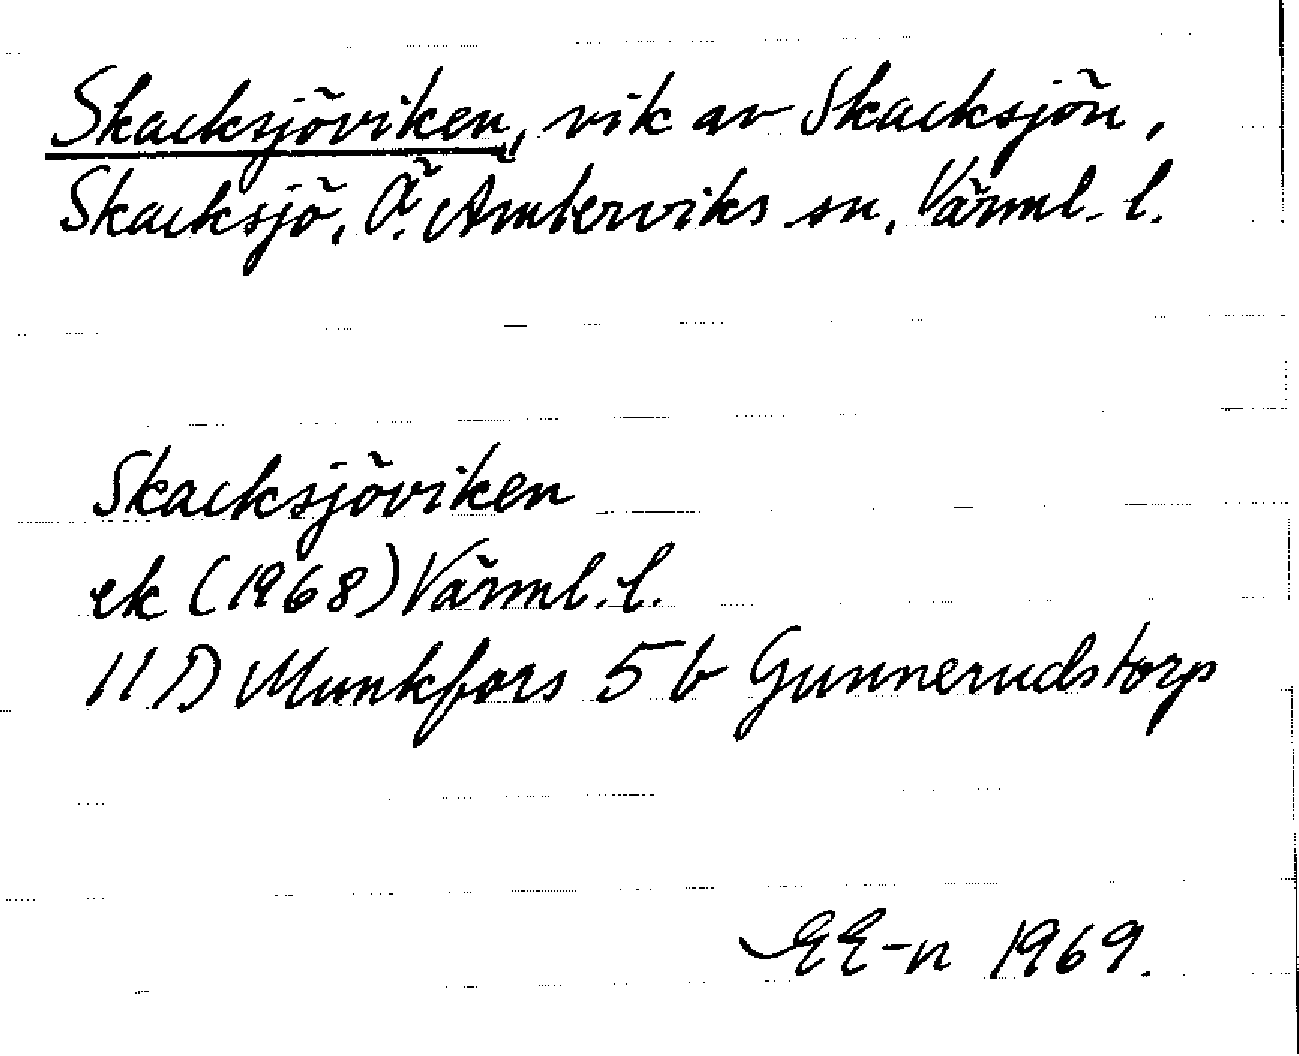 Skacksjöviken, vik av Skacksjön,
Skacksjö, Ö. Ämterviks sn, Värml. l.
Skacksjöviken
ek (1968) Värml. l.
11 D Munkfors 5 b Gunnerudstorp
EE-n 1969.